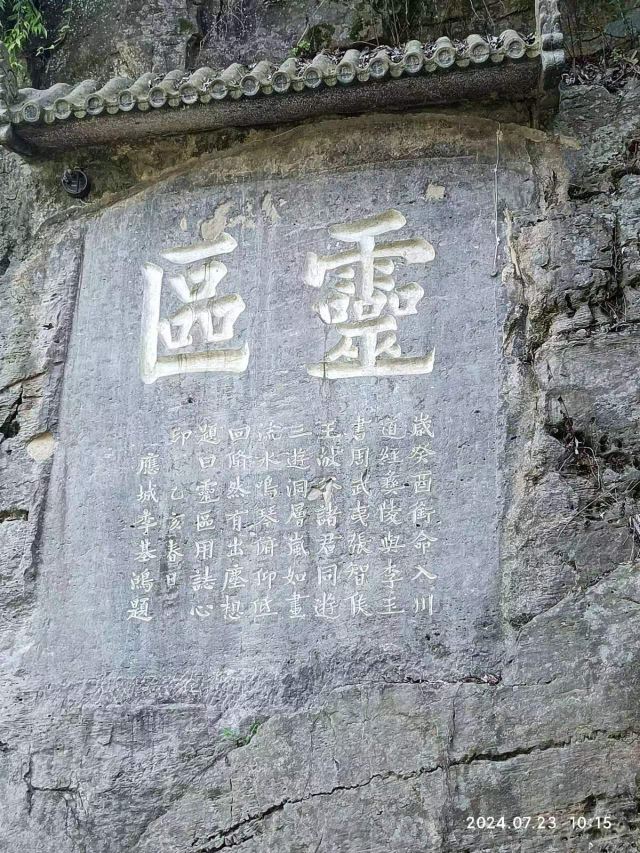 靈區
歲癸酉銜命入川
道經彝陵與李
書周武夷張智
王諸君同遊
三遊洞層嵐如畫
流水鳴琴俯仰低
回翛然有出塵想
題曰靈區用誌心
印 乙亥春日
應城李基鴻題
2024.07.23 10:15